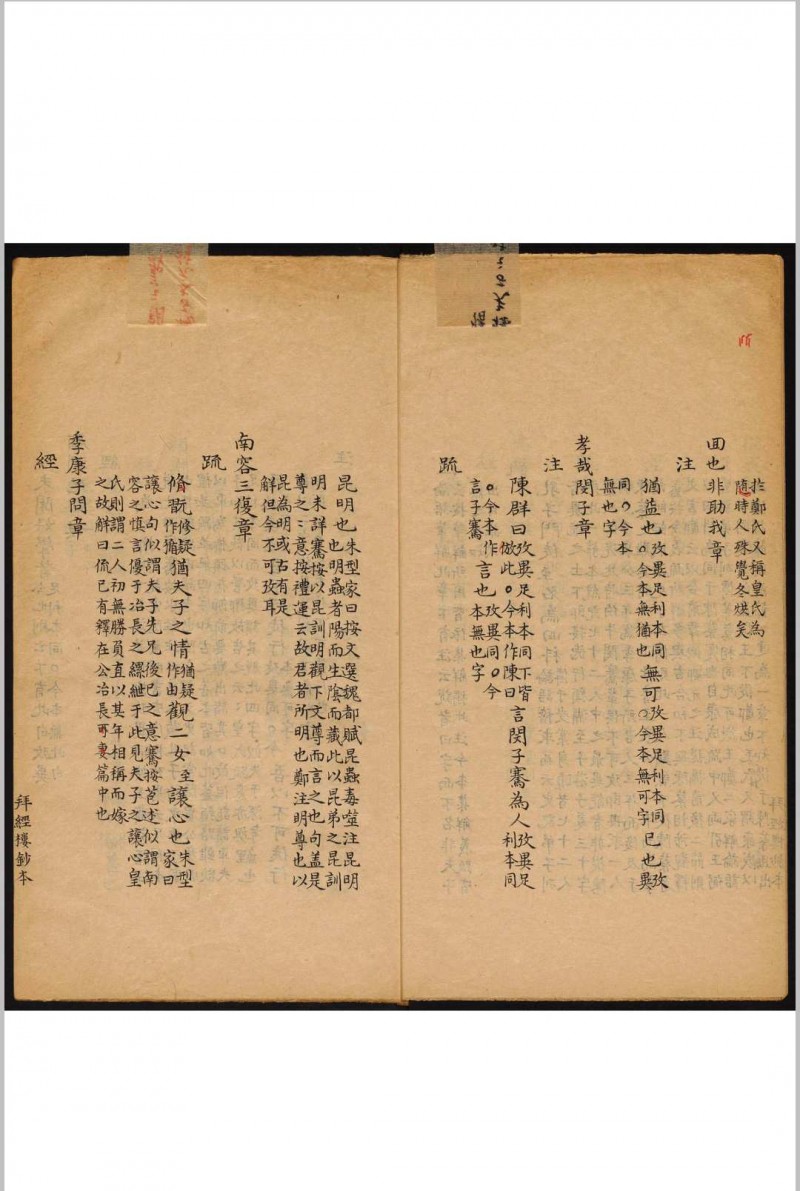 扵鄭氏又稱皇氏為
隨時人殊覺冬烘矣
回也非助我章
注
猶益也 攷異足利本同
○今本無猶也 無可 攷異足利本同
○今本無可字 已也 攷異
同○今本
無也字
孝哉閔子章
注
陳群曰 攷異足利本同下皆
倣此○今本作陳曰 言閔子騫為人 攷異足
利本同
○今本作
言子騫 言也 攷異同○今
本無也字
疏
昆明也 朱型家曰按文選魏都賦昆蟲毒噬注昆明
也明蟲者陽而生陰而藏此以昆弟之昆訓
明未詳騫按以昆訓明觀下文尊而言之也句盖是
尊之〻意按禮運云故君者所明也鄭注明尊也以
昆為明或古有是
解但今不可攷耳
南容三復章
疏
脩翫 修疑
作循 猶夫子之情 猶疑
作由 觀二女至讓心也 朱型
家曰
讓心句似謂夫子先兄後己之意騫按苞述似謂南
容之慎言優于冶長之縲紲于此見夫子之讓心皇
氏則謂二人初無勝負直以其年相稱而嫁
之故解曰侃已有釋在公冶長可妻篇中也
季康子問章
經
拜經樓鈔本